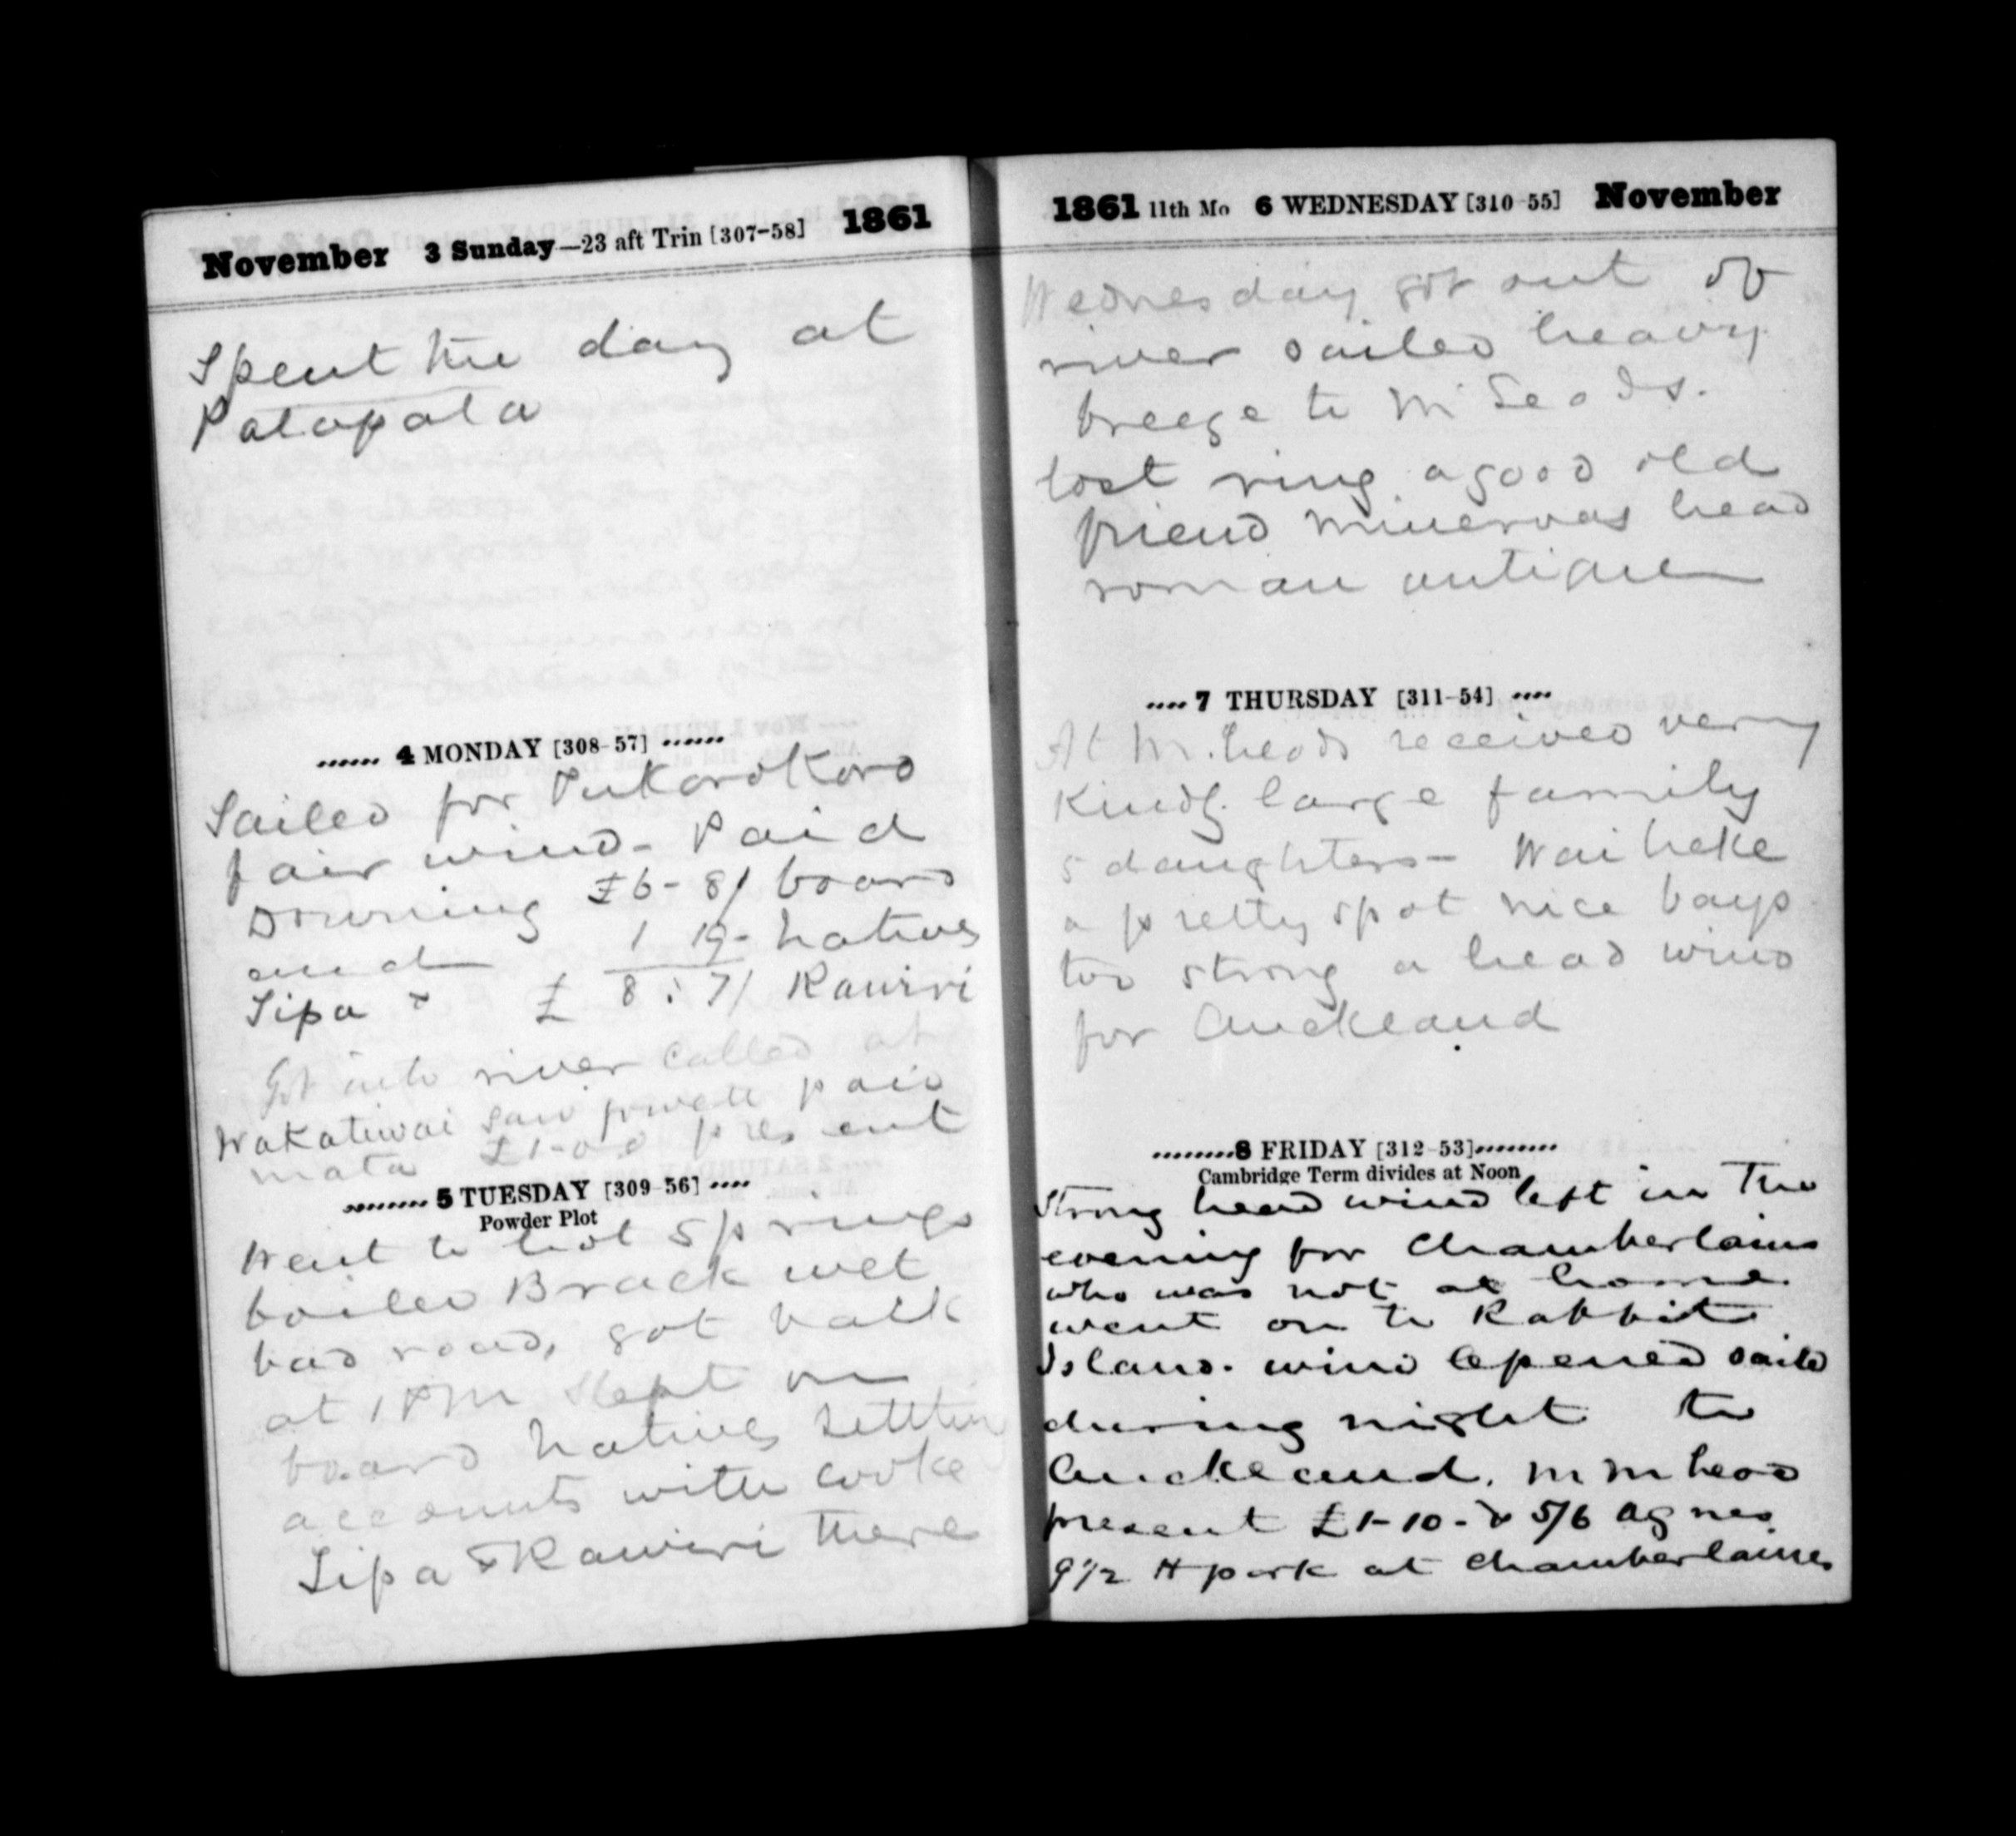 November 3 Sunday—23 aft Trin [307-58] 1861
Spent the day at
Patapata
4 MONDAY [308-57]
Sailed for Pukorokoro
fair wind - Paid
Downing £6-8/ board
and 1 19- natives
Sipa & £ 8:7/ Rawiri
Got into river called at
Wakatiwai saw private paid
mata £1-0.0 present
5 TUESDAY [309-56]
Powder Plot
Went to hot springs
boiled Brack wet
bad road, got back
at 1 PM slept on
board natives settling
accounts with cooke
Sipa & Rawiri there
1861 11th Mo 6 WEDNESDAY [310-55] November
Wednesday got out of
river sailed heavy
breeze to
lost ring a good old
friend minervas head
roman antique
7 THURSDAY [311-54]
At received very
kindly large family
5 daughters - Waiheke
a pretty spot nice bays
too strong a head wind
for Auckland
8 FRIDAY [312-53]
Cambridge Term divides at Noon
Strong head wind left in the
evening for Chamberlains
who was not at home
went on to Rabbit
Island. wind opened sailed
during night to
Auckland.
present £1-10- & 5/6 agnes
9 1/2 # pork at Chamberlaines